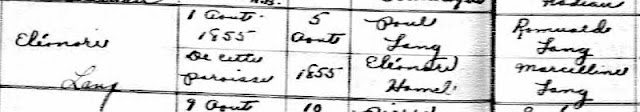 1 Aout 5 Paul Romuald
Eléonore 1855 Aout Lang Lang
De cette Eléonore Marcelline
Lang paroisse 1855 Hamel Lang
9 Aout 10